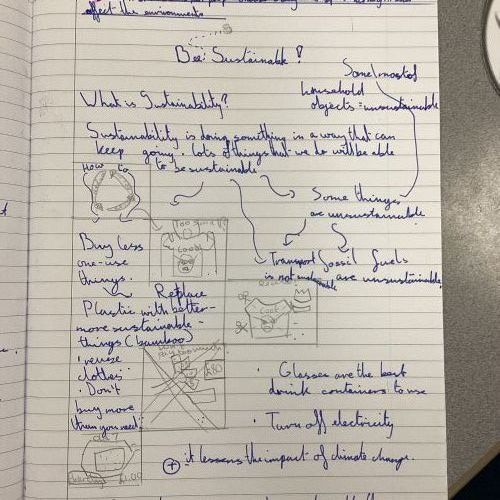 affect the environments
S
Bee Sustainable?
Some/most of
household
objects = unsustainable
What is Sustainability?
Sustainability is doing something in a way that can
keep going. Lots of things that we do will be able
to be sustainable
How to
Some things
are unsustainable
Too small
Cool
Buy less
one-use
things.
Transport
is not
Fossil fuels
are unsustainable
Replace
Plastic with better-
more sustainable-
things (bamboo)
Cool
reuse
clothes
Don't
buy more
than you need
£80
· Glasses are the best
drink containers to use
· Turn off electricity
+ it lessens the impact of climate change.